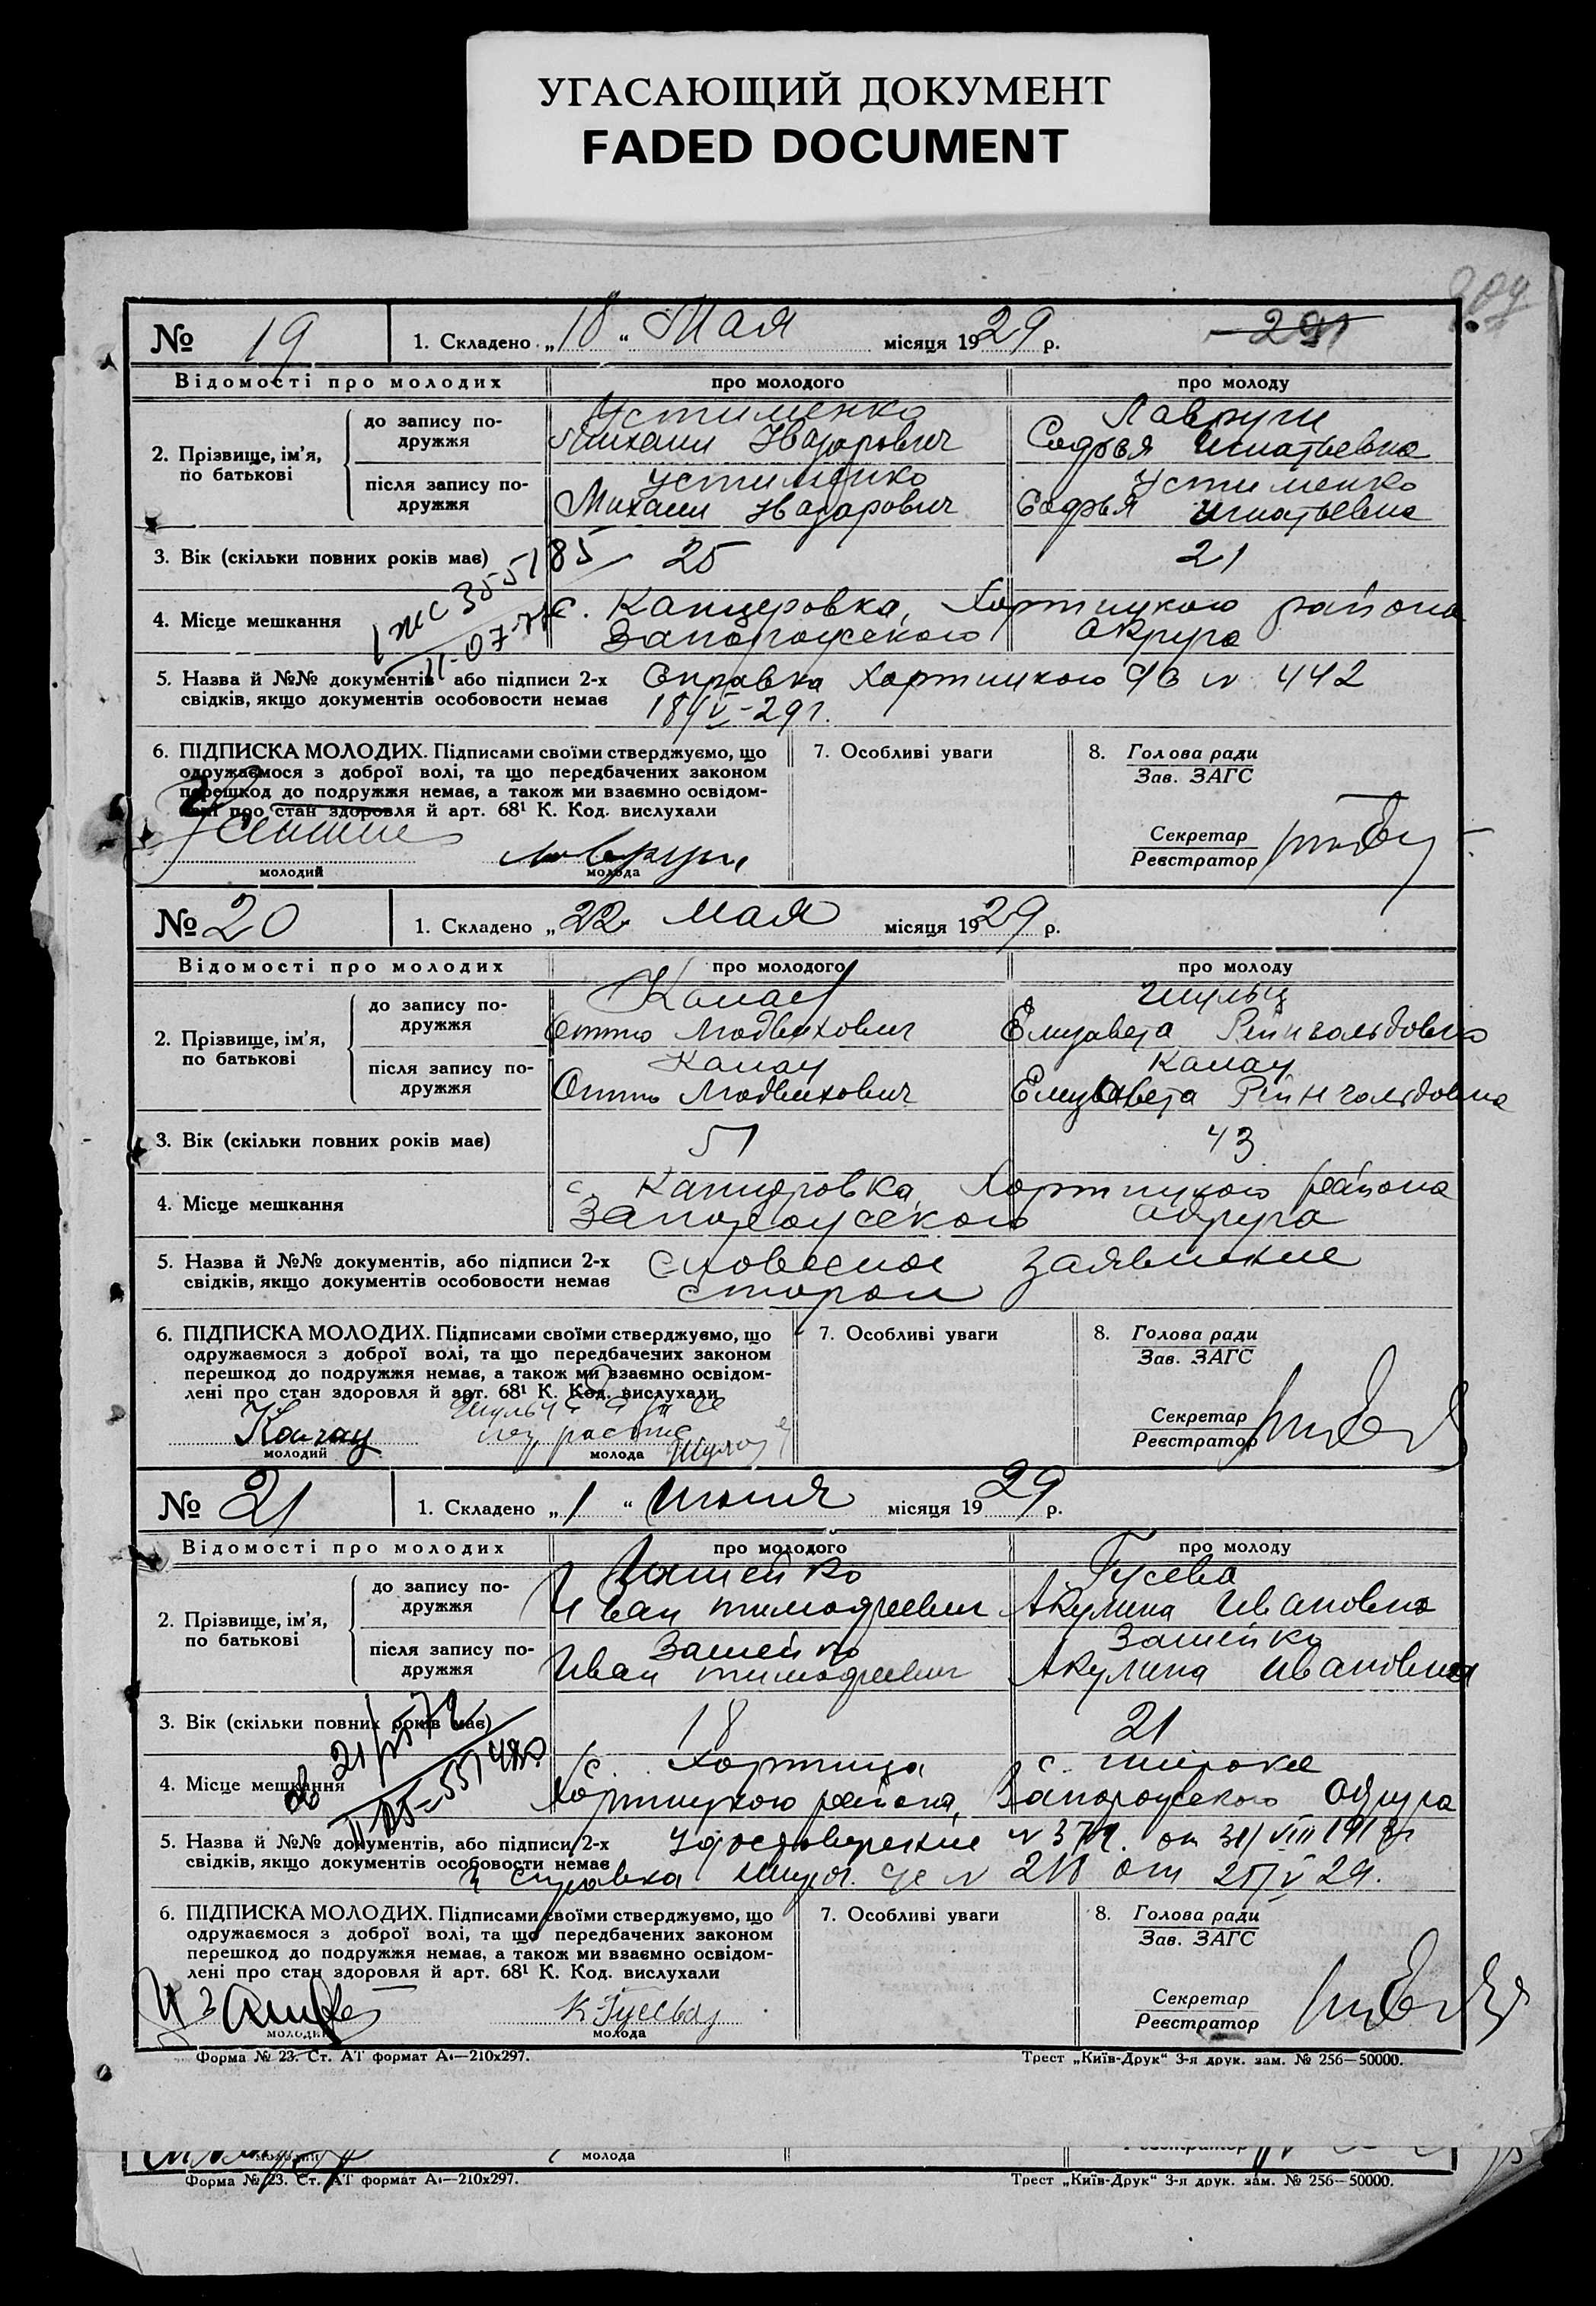 УГАСАЮЩИЙ ДОКУМЕНТ
FADED DOCUMENT
№ 19 1. Складено „18“ Мая місяця 1929 р. 291
Відомості про молодих про молодого про молоду
2. Прізвище, ім’я, по батькові
до запису подружжя
Устименко Лавруги
Михаил Назарович Софья Игнатьевна
після запису по-
дружжя
Устименко Устименко
Михаил Назарович Софья Игнатьевна
3. Вік (скільки повних років має) 25 21
4. Місце мешкання с. Канцеровка, Хортицкого района
Запорожского округа
5. Назва й №№ документів або підписи 2-х Справка Хортицкого № 442
свідків, якщо документів особовости немає 18/V-29 г.
6. ПІДПИСКА МОЛОДИХ. Підписами своїми стверджуємо, що 7. Особливі уваги 8. Голова ради
одружаємося з доброї волі, та що передбачених законом Зав. ЗАГС
перешкод до подружжя немає, а також ми взаємно освідом-
лені про стан здоровля й арт. 68¹ К. Код. вислухали
Секретар
Реєстратор
молодий молода
№ 20 1. Складено „22 мая місяця 1929 р.
Відомості про молодих про молодого про молоду
2. Прізвище, ім’я,
по батькові
до запису по-
дружжя
Канау Шульц
Отто Людвихович Елизавета Рейнгольдовна
після запису по-
дружжя
Канау Канау
Отто Людвихович Елизавета Рейнгольдовна
3. Вік (скільки повних років має) 51 43
4. Місце мешкання с Канцеровка, Хортицкого района
Запорожского округа
5. Назва й №№ документів, або підписи 2-х Словесное заявление
свідків, якщо документів особовости немає сторон
6. ПІДПИСКА МОЛОДИХ. Підписами своїми стверджуємо, що 7. Особливі уваги 8. Голова ради
одружаємося з доброї волі, та що передбачених законом Зав. ЗАГС
перешкод до подружжя немає, а також ми взаємно освідом-
лені про стан здоровля й арт. 68¹ К. Код. вислухали
Секретар
Реєстратор
молодий молода
№ 21 1. Складено „1“ июня місяця 1929 р.
Відомості про молодих про молодого про молоду
2. Прізвище, ім’я,
по батькові
до запису по-
дружжя
Гусева
Иван тимофеевич Акулина Ивановна
після запису по-
дружжя
Зашейко Зашейко
Иван тимофеевич Акулина Ивановна
3. Вік (скільки повних років має) 18 21
4. Місце мешкання с. Хортица, с. широкое
Хортицкого района, Запорожского округа
5. Назва й №№ документів, або підписи 2-х Удостоверение
свідків, якщо документів особовости немає и справка от 25/V 29.
6. ПІДПИСКА МОЛОДИХ. Підписами своїми стверджуємо, що 7. Особливі уваги 8. Голова ради
одружаємося з доброї волі, та що передбачених законом Зав. ЗАГС
перешкод до подружжя немає, а також ми взаємно освідом-
лені про стан здоровля й арт. 68¹ К. Код. вислухали
Секретар
Реєстратор
К Гусева
молодий молода
Форма № 23. Ст. АТ формат А₄—210x297. Трест „Київ-Друк“ 3-я друк. зам. № 256—50000.
молодий молода Реєстратор
Форма № 23. Ст. АТ формат А₄—210x297. Трест „Київ-Друк“ 3-я друк. зам. № 256—50000.